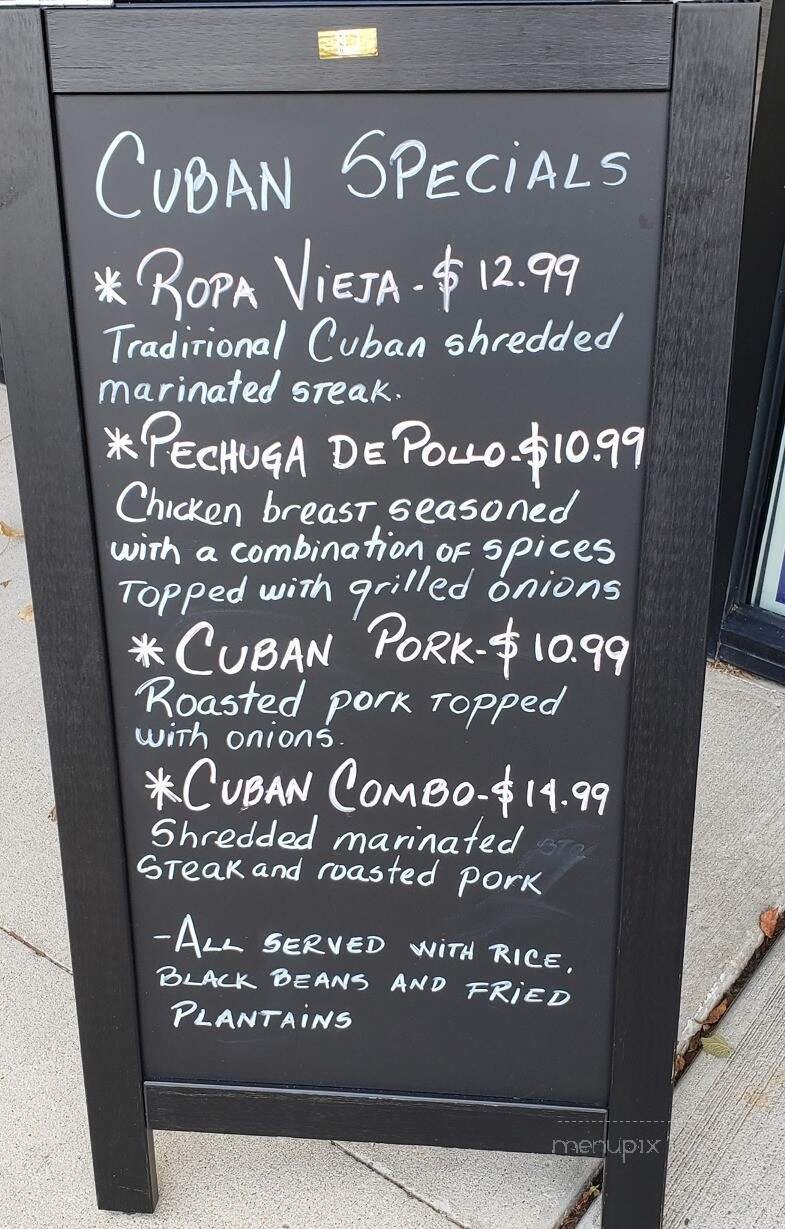 CUBAN SPECIALS
* ROPA VIEJA - $ 12.99
Traditional Cuban shredded
marinated steak.
* PECHUGA DE POLLO - $10.99
Chicken breast seasoned
with a combination of spices
topped with grilled onions
* CUBAN PORK - $ 10.99
Roasted pork topped
with onions.
* CUBAN COMBO - $ 14.99
Shredded marinated
steak and roasted pork
- ALL SERVED WITH RICE,
BLACK BEANS AND FRIED
PLANTAINS
menupix